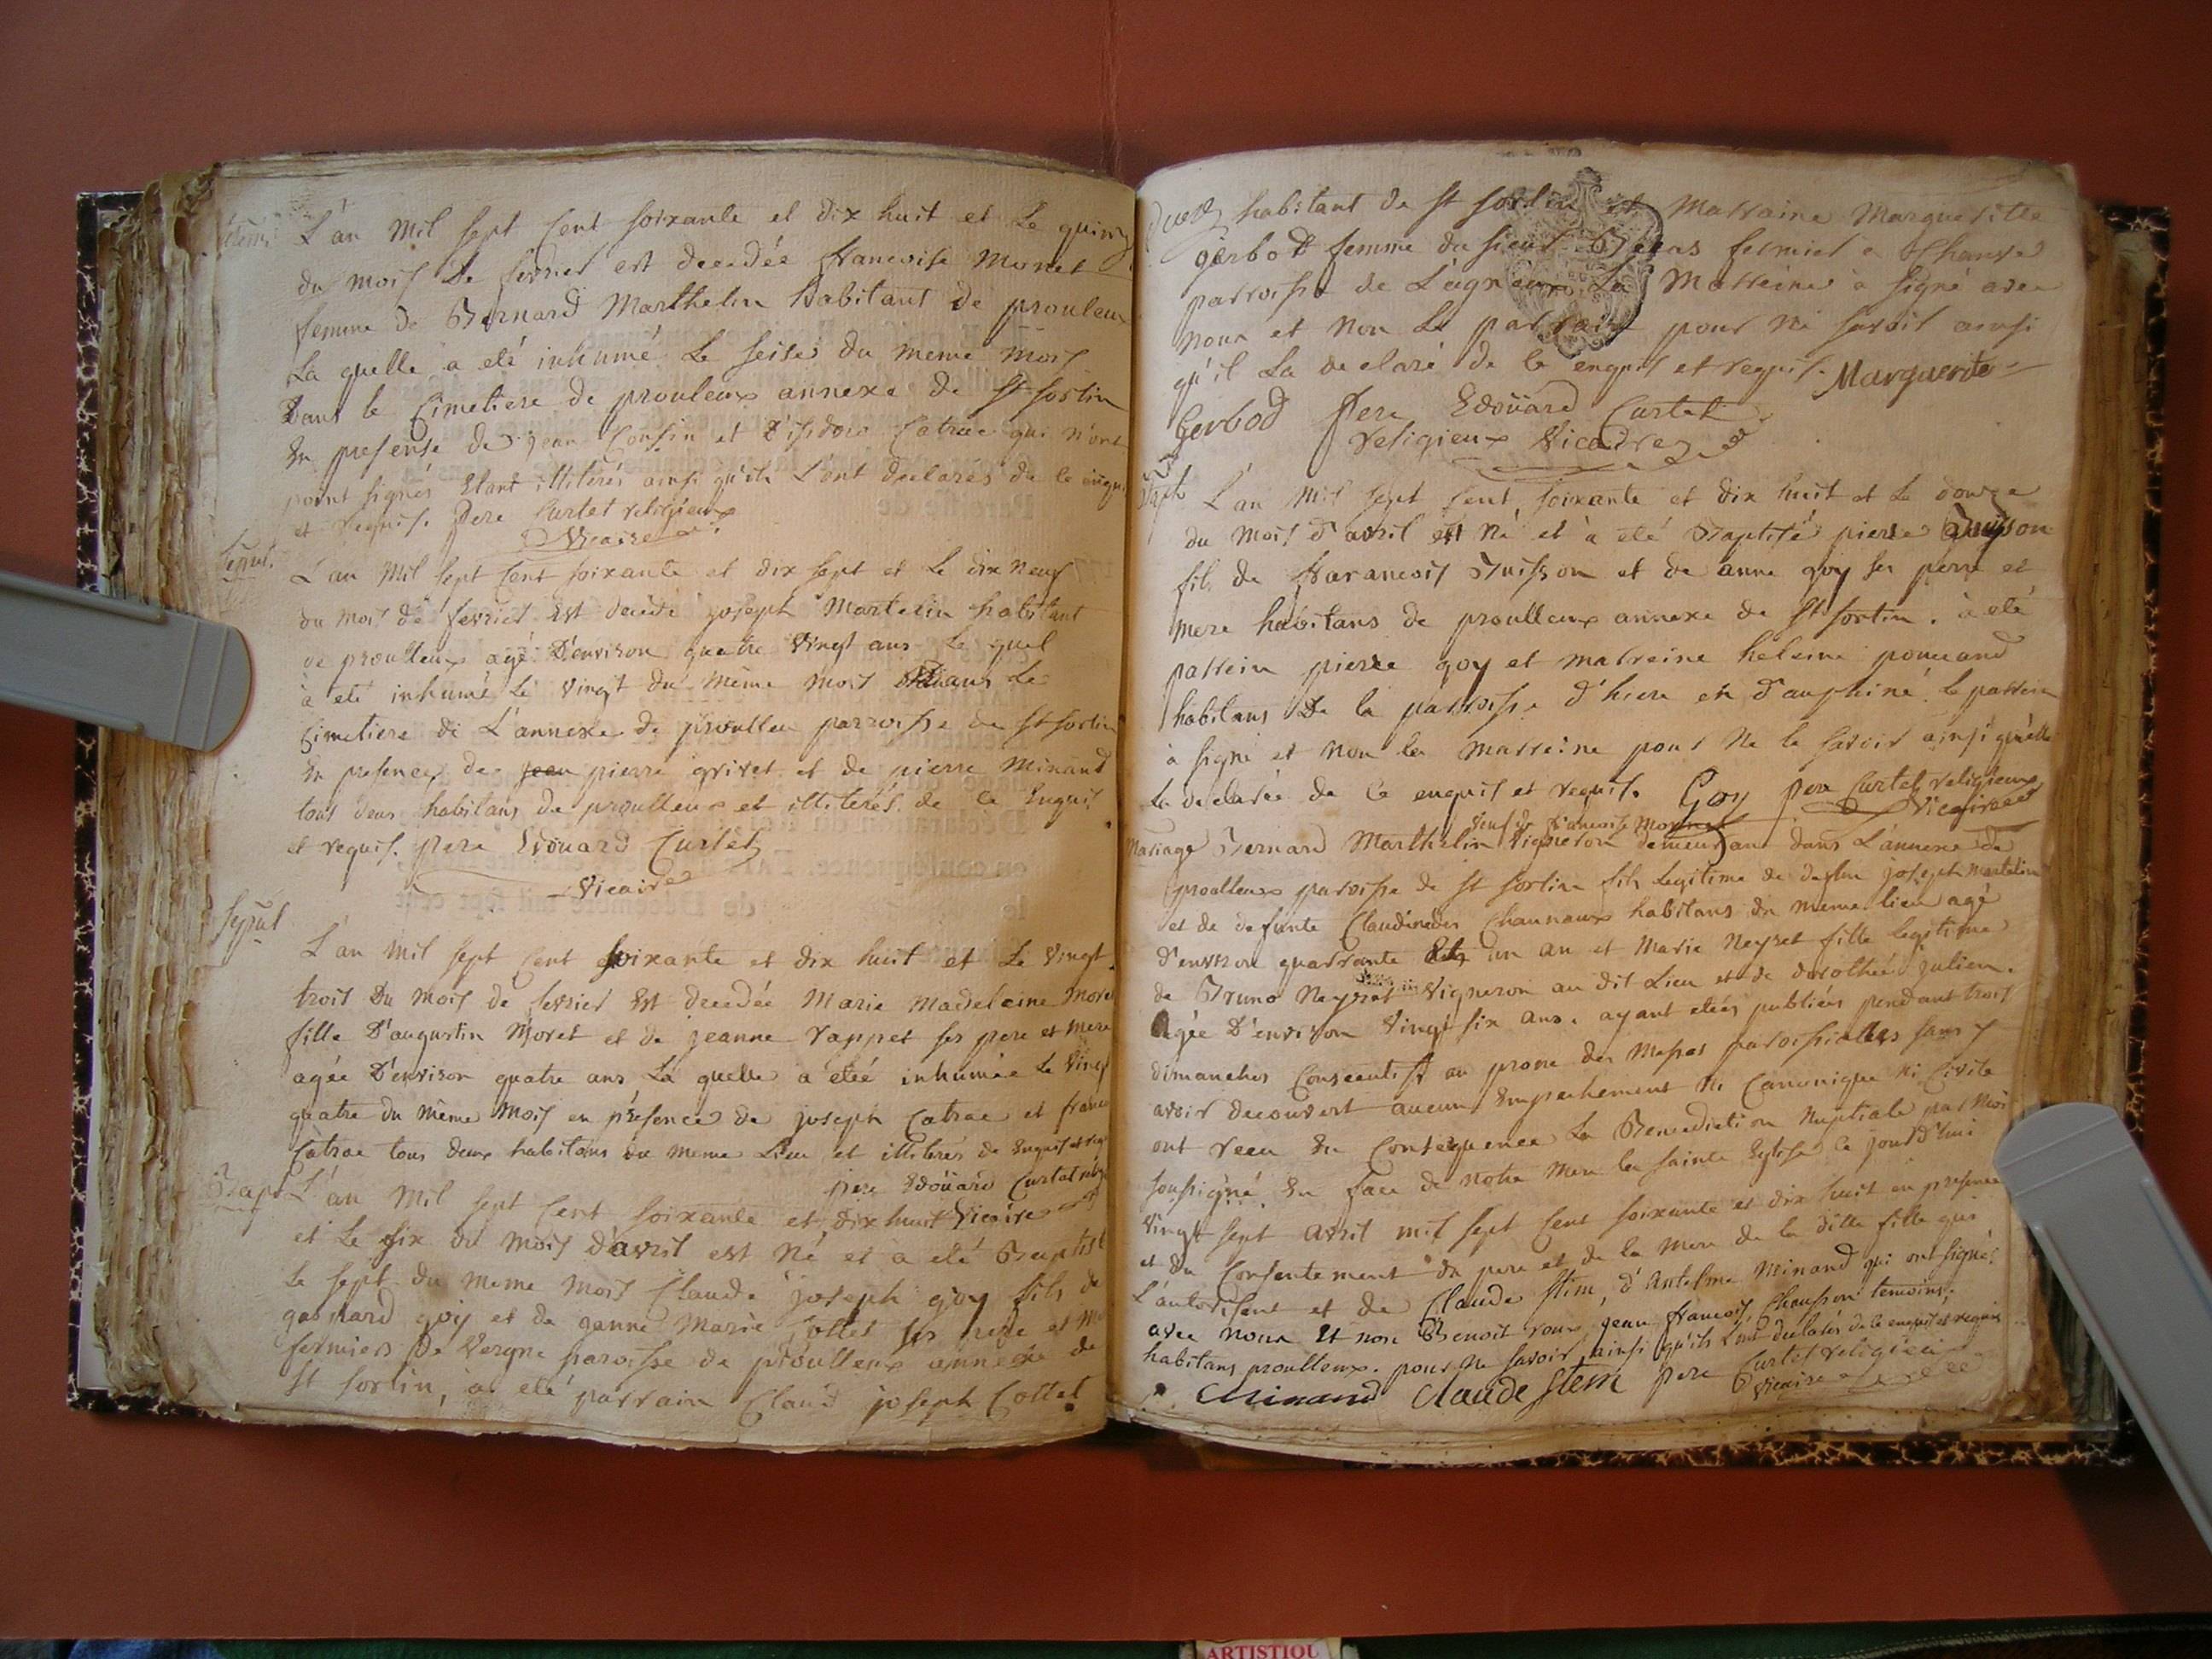 L'an mil sept cent soixante et dix huit et le quinz
du mois de fevrier est decedée francoise Monet
femme de Bernard Marthelin habitant de prouleux
La quelle a eté inhumé le seise du meme mois
Dans le Cimetiere de prouleux annexe de St sorlin
En presense de jean Consin et d'isidore Catrae qui n'ont
point signés Etant illiterés ainsi qu'ils L'ont declarés de ce enqui
et requis. Pere Curtet religieux
Vicaire
sepul.
L'an mil sept cent soixante et dix sept et le dix neuf
du mois de fevrier Est decedé joseph Martelin habitant
de proulleux agé D'environ quatre vingt ans Le quel
à eté inhumé Le vingt du même mois dans Le
Cimetiere de L'annexe de proulleu parroisse de St sorlin
En presence de jean pierre grivet et de pierre Minand
tous deux habitans de proulleux et illiterés de Ce Enquis
et requis. Pere Edouard Curtet
Vicaire
sepul
L'an mil sept cent soixante et dix huit et Le vingt
trois Du mois de fevrier Est decedée Marie Madeleine More
fille D'augustin Moret et de jeanne rappet ses pere et mere
agée D'environ quatre ans La quelle a eteé inhumée Le vingt
quatre du même mois en présence de joseph Catrae et franco
Catrae tous deux habitans du meme Lieu et illiterés de Enquis et req
pere Edoüard Curtet
Bapt L'an mil sept cent soixante et dix huit Vicaire
et Le six du mois d'avril est Né et a eté Baptisé
Le sept du meme mois Claude joseph goy fils de
gaspard goy et de janne Marie Collet ses pere et me
fermiers De Vergne paroisse de proulleux annexe de
St sorlin, a eté parrain Claud joseph Collet
habitant de St sorlin et Marraine Margueritte
gerbod femme du sieur fermier a
parroisse de Lagnieu La Marreine à signé avec
nous et non Le parrain pour ne savoir ainsi
qu'il La declaré de ce enquis et requis. Marguerite
Gerbod Pere Edoüard Curtet
religieux Vicaire
Bapt L'an mil sept cent soixante et dix huit et Le douze
du mois d'avril est Né et à eté Baptisé pierre Buisson
fils de Francois Buisson et de anne goy ses perre et
mere habitans de proulleux annexe de St sorlin. à eté
parrein pierre goy et marreine heleine
habitans De la parroisse d'hiere en Dauphiné. le parrein
à signé et non la marreine pour Ne le savoir ainsi qu'elle
La declarée de Ce enquis et requis. Goy pere Curtet religieux
Vicaire
veuf de Francoise Monet
Mariage Bernard Marthelin Vigneron demeurant dans L'annexe de
proulleux paroisse de St sorlin fils Legitime de defun joseph Martelin
et de defunte Claudine habitans du meme lieu agé
D'environ quarrante Et un an et Marie Neyret fille legitime
de Bruno Neyret Vigneron au dit Lieu et de dorothée julien.
Agée D'environ Vingt six ans. ayant eteés publiées pendant trois
dimanches Consecutifs au prone des Messes paroissialles sans y
avoir decouvert aucun Empechement Ni Canonique Ni Civile
ont recu En Consequence La Benediction Nuptiale par moi
soussigné En face de notre Mere la sainte Eglise Ce jourd'hui
Vingt sept Avril mil sept Cent soixante et dix huit en presence
et du Consentement du pere et de la Mere de la ditte fille qui
L'autorisent et de Claude Stim, d'Antelme Minand qui ont signés
avec nous Et non Benoit roux, jean francois Chausson temoins,
habitans proulleux. pour Ne savoir, ainsi qu'ils L'ont declarés de ce enquis et requis
Minand Claude Stem pere Curtet religieu
Vicaire
ARTISTIQU